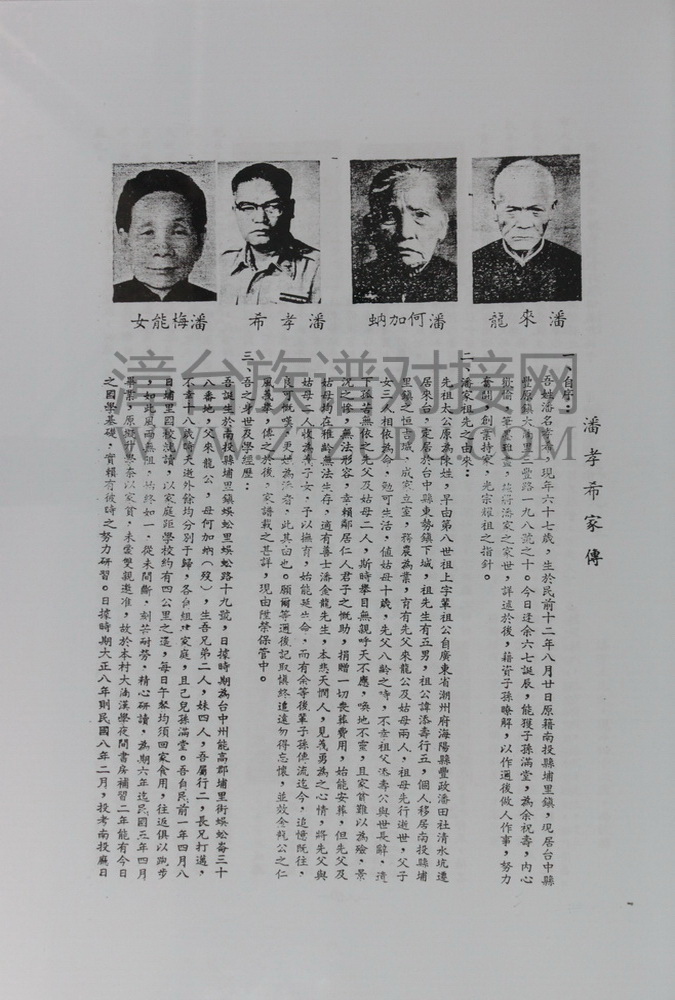 潘來龍
潘何加蚋
潘孝希
潘梅能女
漳台族谱对接网
WWW.ZTZUPU.COM
潘孝希家傳
一、自序：
吾姓潘名孝希，現年六十七歲，生於民前十二年八月廿日原籍南投縣埔里鎮，現居台中縣
豐原鎮六南里三豐路一九八號之十。今日逢余六七誕辰，能獲子孫滿堂，為余祝壽，內心
歡愉，筆墨難盡，茲將潘家之家世，詳述於後，藉資子孫瞭解，以作週後做人作事，努力
奮鬪，創業持家，光宗耀祖之指針。
二、潘家祖先之由來：
先祖太公原為陳姓，早由第八世祖上字輩祖公自廣東省潮州府海陽縣豐政潘田社清水坑遷
居來台，定居於台中縣東勢鎮下城，祖先生有五男，祖公諱添壽行五，個人移居南投縣埔
里鎮之恒吉城，成家立室，務農為業，育有先父來龍公及姑母兩人，祖母先行逝世，父子
女三人相依為命，勉可生活，值姑母十歲，先父八齡之時，不幸祖父添壽公與世長辭，遺
下孤苦無依之先父及姑母二人，斯時舉目無親呼天不應，喚地不靈，且家貧難以為殮，景
況之慘，無法形容，幸賴鄰居仁人君子之慨助，捐贈一切喪葬費用，始能安葬，但先父及
姑母均在雅齡無法生存，適有善士潘金龍先生，本悲天憫人，見義勇為之心情，將先父與
姑母二人收為養子女，予以撫育，始能延生命，而有余等後輩子孫傳流迄今，追憶既往，
良可慨嘆，更姓為潘者，此其由也。願爾等週後記取慎終追遠勿得忘懷，並效金龍公之仁
風義舉，傳之於後，家譜載之甚詳，現由陞榮保管中。
三、吾之身世及學經歷：
吾誕生於南投縣埔里鎮蜈蚣里蜈蚣路十九號，日據時期為台中州能高郡埔里街蜈蚣崙三十
八番地，父來龍公，母何加蚋（歿），生吾兄弟二人，妹四人，吾屬行二，長兄打邁，
不幸十八歲時夭逝外餘均分別于歸，各自組織家庭，且己兒孫滿堂。吾自民前一年四月八
日埔里國校就讀，以家庭距學校約有四公里之遙，每日午餐均須回家食用，往返俱以跑步
，如此風雨無阻，始終如一，從未間斷，刻苦耐勞，精心研讀，為期六年迄民國三年四月
畢業，原擬升學奈以家貧，未蒙雙親邀准，故於本村大湳漢學夜間書房補習二年能有今日
之國學基礎，實賴有彼時之努力研習。日據時期大正八年則民國八年二月，投考南投廳日